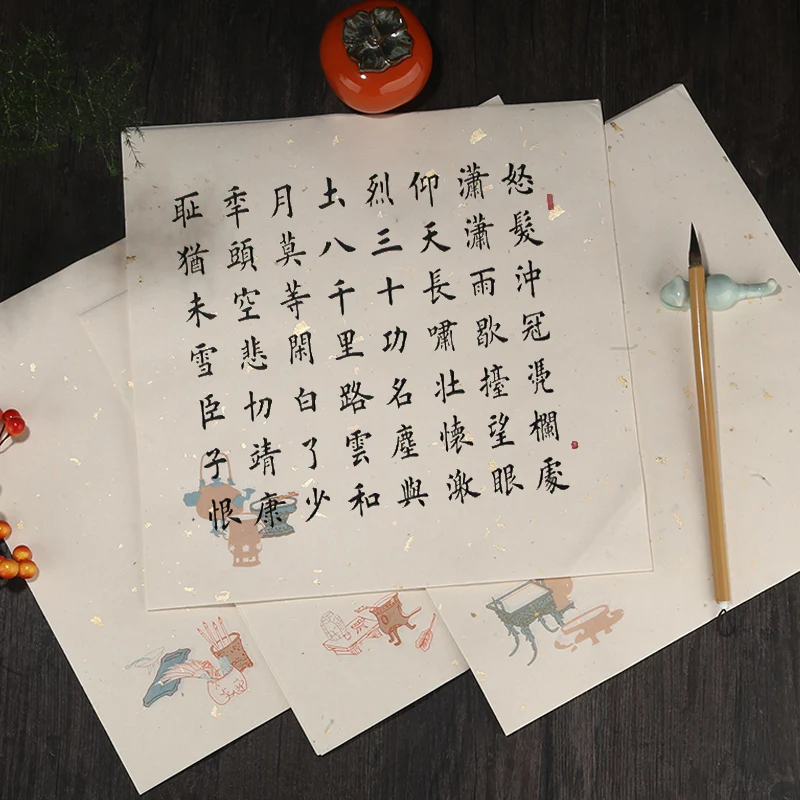 怒髮沖冠凴欄處
瀟瀟雨歇擡望眼
仰天長嘯壯懷激
烈三十功名塵與
圡八千里路雲和
月莫等閑白了少
秊頭空悲切靖康
耻猶未雪臣子恨